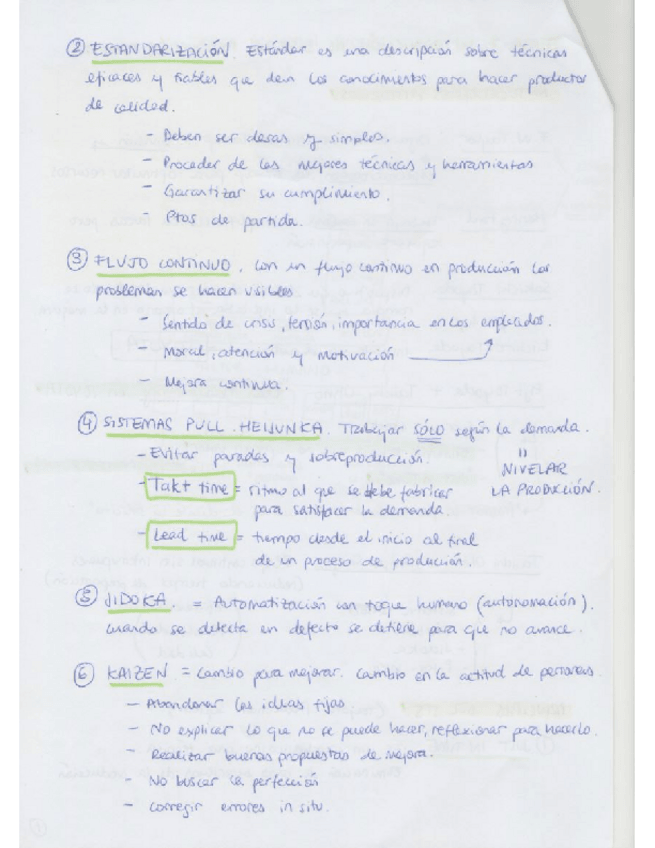 ② ESTANDARIZACIÓN. Estándar es una descripción sobre técnicas
eficaces y fiables que den los conocimientos para hacer productos
de calidad.
- Deben ser claras y simples.
- Proceder de las mejores técnicas y herramientas
- Garantizar su cumplimiento.
- Ptos de partida.
③ FLUJO CONTINUO. Con un flujo continuo en producción los
problemas se hacen visibles
- Sentido de crisis, tensión, importancia en los empleados.
- Moral, atención y motivación
- Mejora continua.
④ SISTEMAS PULL. HEIJUNKA. Trabajar SÓLO según la demanda.
- Evitar paradas y sobreproducción.
=
NIVELAR
LA PRODUCIÓN.
- Takt time = ritmo al que se debe fabricar
para satisfacer la demanda
- Lead time = tiempo desde el inicio al final
de un proceso de producción.
⑤ JIDOKA. = Automatización con toque humano (autonomación).
Cuando se detecta un defecto se detiene para que no avance.
⑥ KAIZEN = Cambio para mejorar. Cambio en la actitud de personas.
- Abandonar las ideas fijas
- No explicar lo que no se puede hacer, reflexionar para hacerlo.
- Realizar buenas propuestas de mejora.
- No buscar la perfección
- Corregir errores in situ.